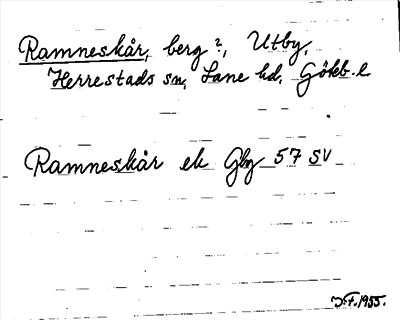 Ramneskår, berg?, Utby,
Herrestads sn, Lane hd, Gökb. l.
Ramneskår ek Gbg 57 SV
J.F. 1955.